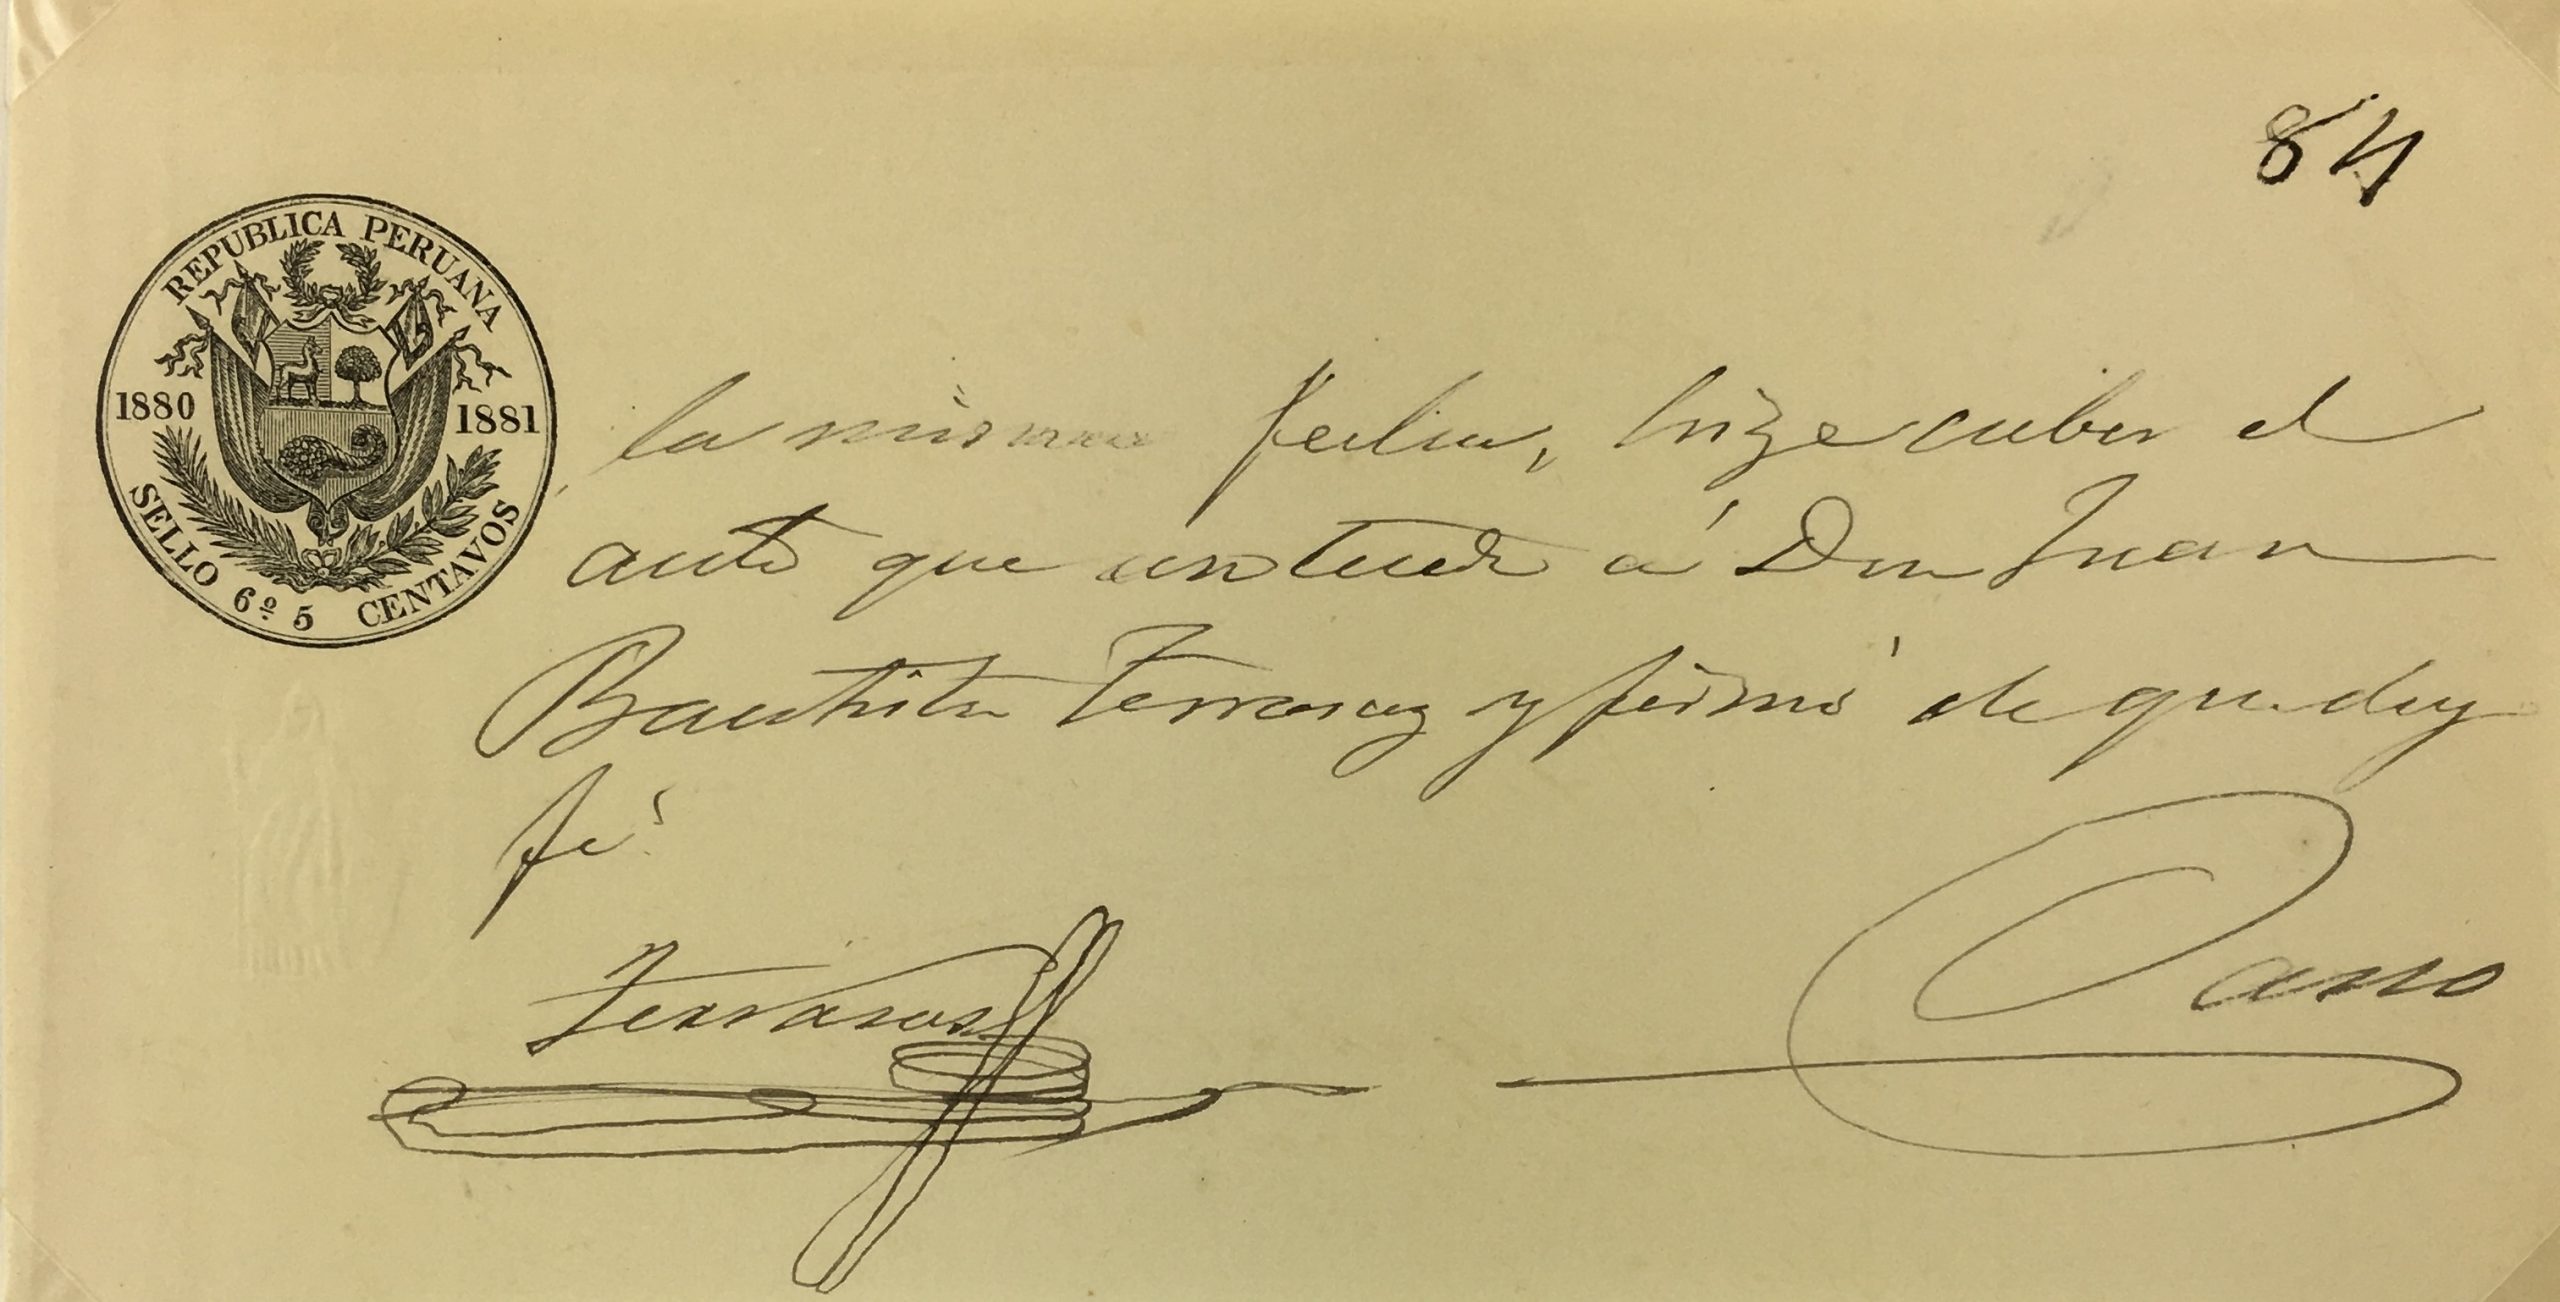 84
REPUBLICA PERUANA
1880 1881
SELLO 6º 5 CENTAVOS
la misma fecha, hize saber el
auto que antecede á Don Juan
Bautista Terrazas y firmó de que doy
fé
Terrazas
Cano